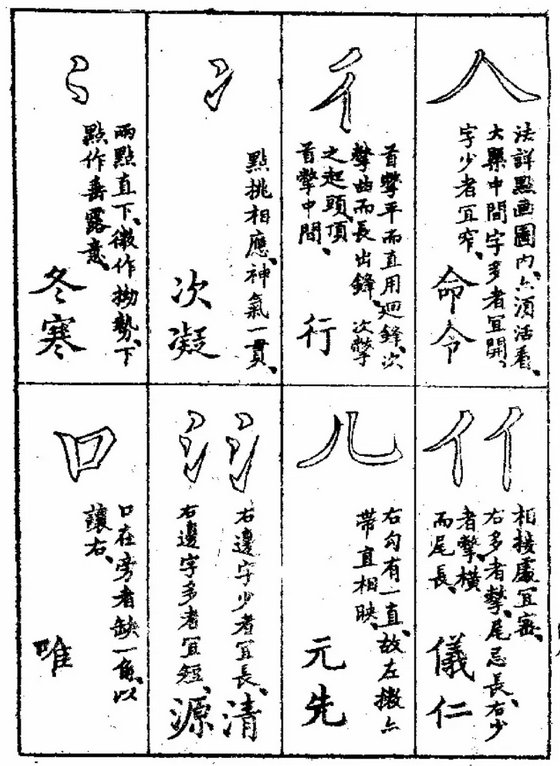 人
法詳點画圖内、亦須活看、
大槩中間字多者宜開、
字少者宜窄、
命令
彳
首撆平而直用迴鋒、次
撆曲而長出鋒、次撆
之起頭頂
首撆中間、
行
冫
點挑相應、神氣一貫、
次凝
⺀
兩點直下、微作拗勢、下
點作垂露意、
冬寒
亻亻
相接處宜審、
右多者撆尾忌長、右少
者撆橫
而尾長、
儀仁
儿
右勾有一直、故左撇亦
帶直相映、
元先
氵氵
右邊字少者宜長、
清
右邊字多者宜短、
源
口
口在旁者缺一角、以
讓右、
唯